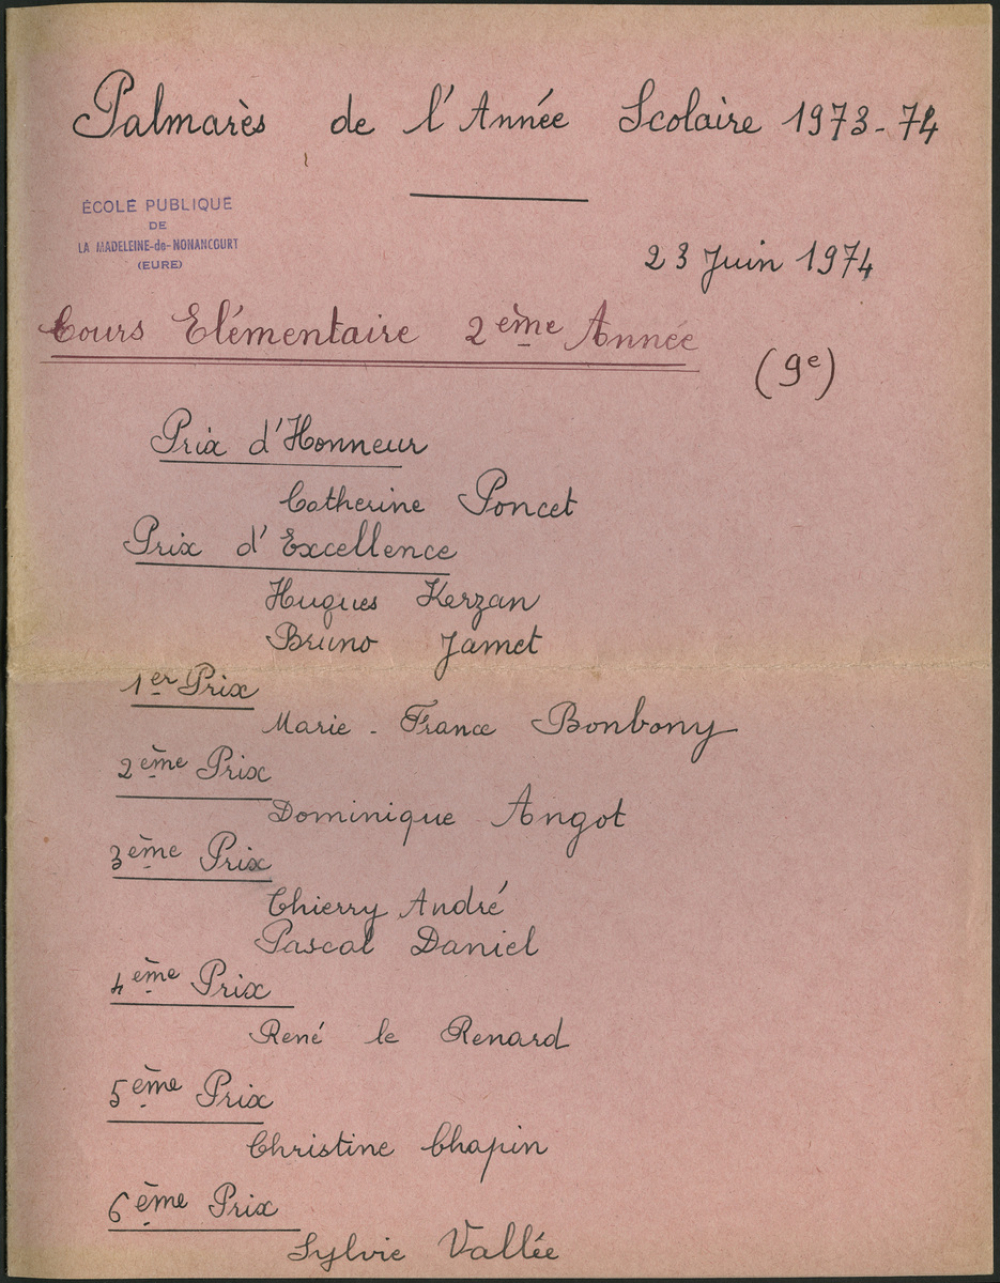 Palmarès de l'Année Scolaire 1973-74
ÉCOLE PUBLIQUE
DE
LA MADELEINE-de-NONANCOURT
(EURE)
23 Juin 1974
Cours Elémentaire 2ème Année
(9e)
Prix d'Honneur
Catherine Poncet
Prix d'Excellence
Hugues Kerzan
Bruno Jamet
1er Prix
Marie-France Bonbony
2ème Prix
Dominique Angot
3ème Prix
Thierry André
Pascal Daniel
4ème Prix
René le Renard
5ème Prix
Christine Chapin
6ème Prix
Sylvie Vallée